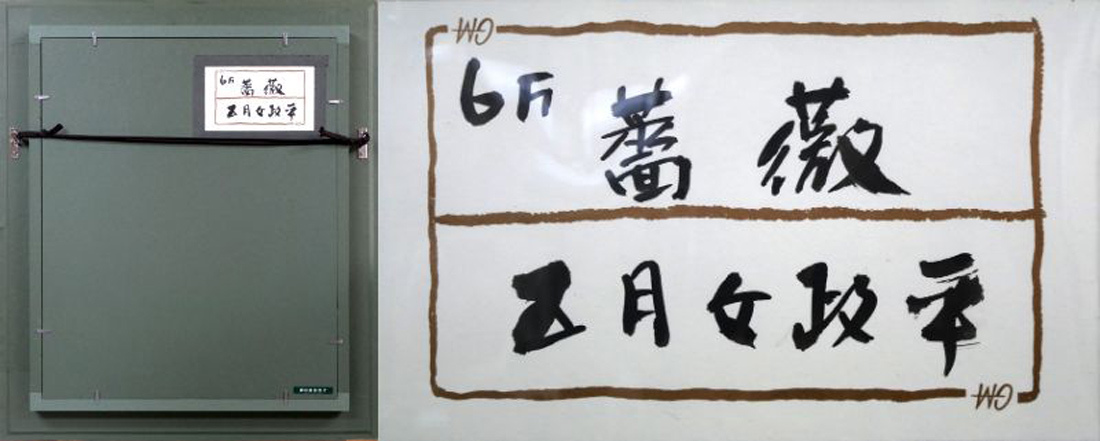 6F 薔薇
五月女政平
6F 薔薇
五月女政平